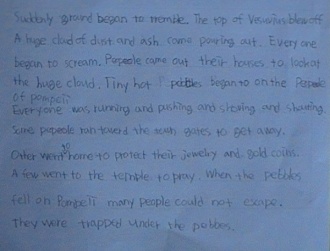 Suddenly ground began to tremble. The top of Vesuvius blew off
A huge cloud of dust and ash came pouring out. Every one
began to scream. Popeole came out their houses to look at
the huge cloud. Tiny hot pebbles began to on the Perpole
of pompeii
Everyone was running and pushing and shoving and shouting.
Some pepeole ran toward the south gates to get away.
Other went to home to protect their jewelry and gold coins.
A few went to the temple to pray. When the pebbles
fell on Pombeii many people could not escape.
They were trapped under the pebbes.